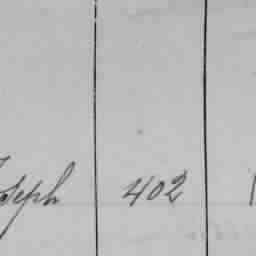 Joseph 402